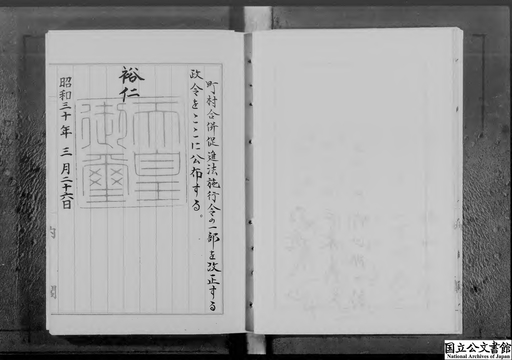 町村合併促進法施行令の一部を改正する
政令をここに公布する。
裕仁
天皇
御璽
昭和三十年三月二十六日
内
閣
国立公文書館
National Archives of Japan